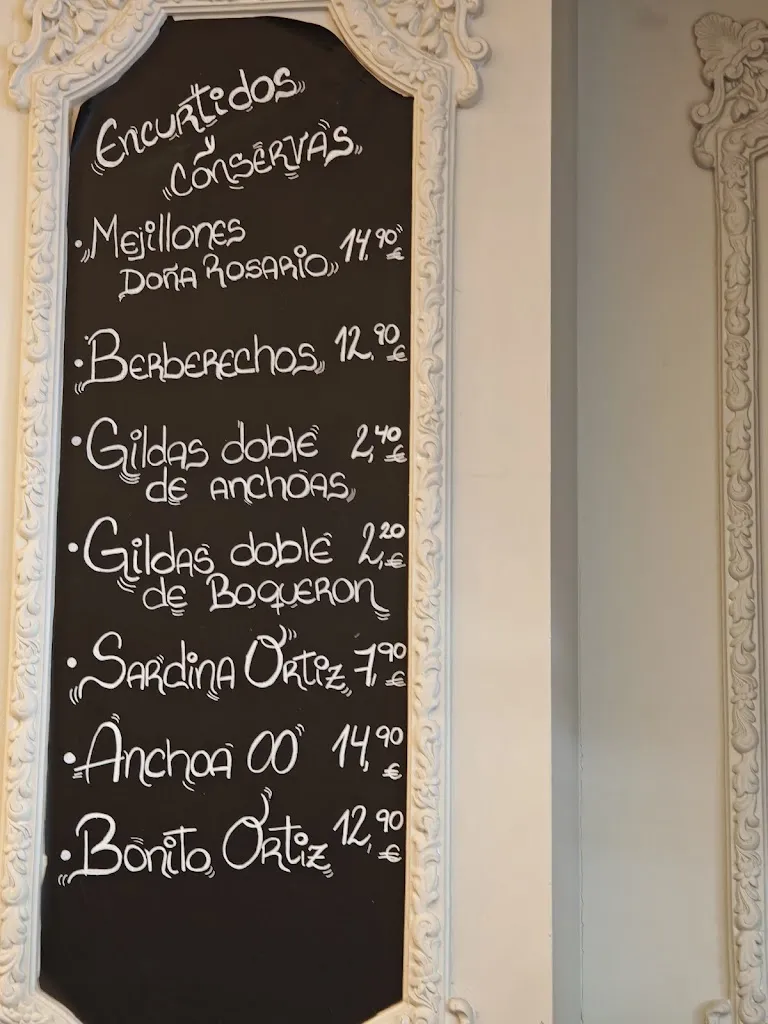 Encurtidos
y
Conservas
· Mejillones 14,90 €
Doña Rosario
· Berberechos 12,90 €
· Gildas doble 2,40 €
de anchoas
· Gildas doble 2,20 €
de Boqueron
· Sardina Ortiz 7,90 €
· Anchoa 00 14,90 €
· Bonito Ortiz 12,90 €